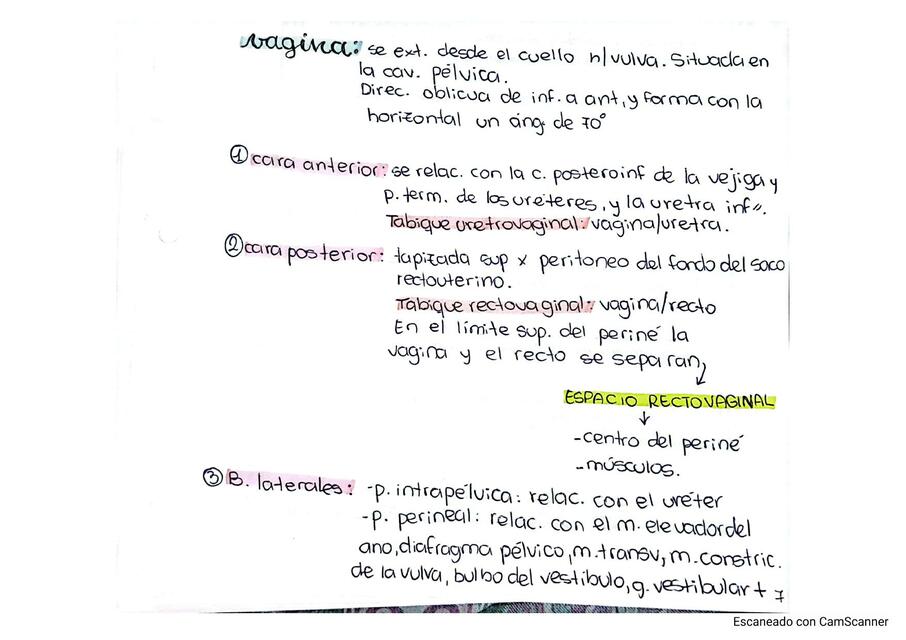 vagina: se ext. desde el cuello h/vulva. Situada en
la cav. pélvica.
Direc. oblicua de inf. a ant, y forma con la
horizontal un áng. de 70°
① cara anterior: se relac. con la c. posteroinf de la vejiga y
p. term. de los uréteres, y la uretra inf//.
Tabique uretrovaginal: vagina/uretra.
② cara posterior: tapizada sup x peritoneo del fondo del saco
rectouterino.
Tabique rectovaginal: vagina/recto
En el límite sup. del periné la
vagina y el recto se separan,
↓
ESPACIO RECTOVAGINAL
↓
-centro del periné
-músculos.
③ B. laterales: -p. intrapélvica: relac. con el uréter
-p. perineal: relac. con el m. elevador del
ano, diafragma pélvico, m. transv, m. constric.
de la vulva, bulbo del vestíbulo, g. vestibular +
7
Escaneado con CamScanner